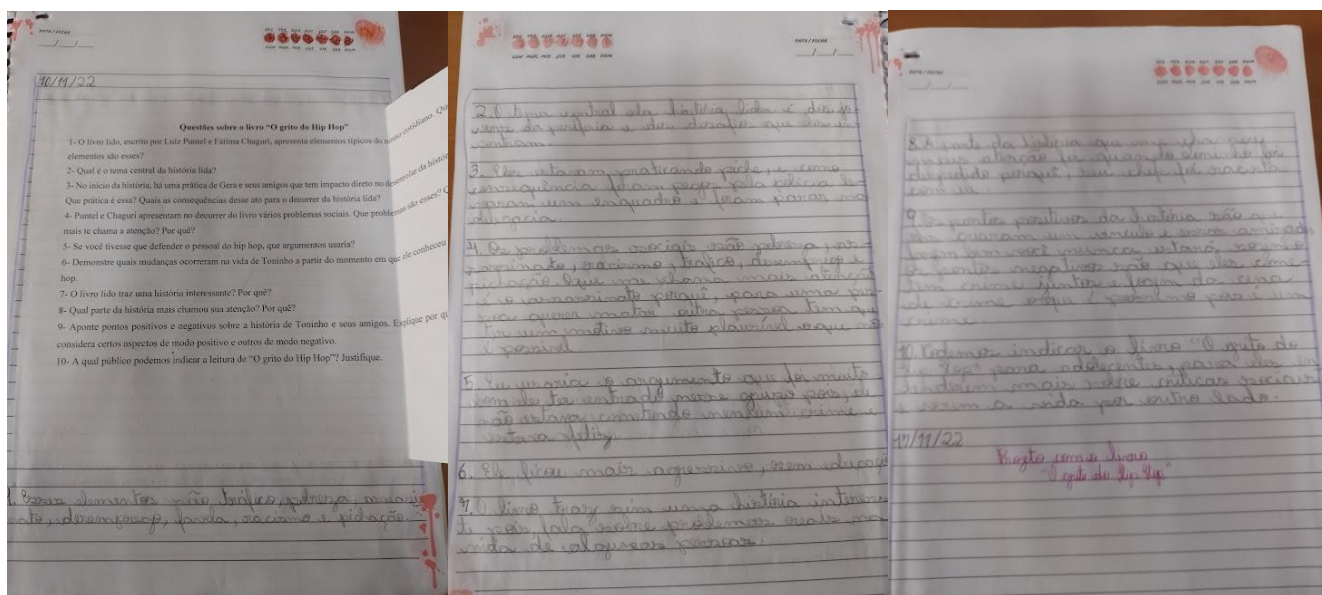 DATA / FECHA
10/11/22
Questões sobre o livro "O grito do Hip Hop"
1- O livro lido, escrito por Luiz Puntel e Fátima Chaguri, apresenta elementos típicos do nosso cotidiano. Qu
elementos são esses?
2- Qual é o tema central da história lida?
3- No início da história, há uma prática de Gera e seus amigos que tem impacto direto no desenrolar da histór
Que prática é essa? Quais as consequências desse ato para o decorrer da história lida?
4- Puntel e Chaguri apresentam no decorrer do livro vários problemas sociais. Que problemas são esses? Q
mais te chama a atenção? Por quê?
5- Se você tivesse que defender o pessoal do hip hop, que argumentos usaria?
6- Demonstre quais mudanças ocorreram na vida de Toninho a partir do momento em que ele conheceu
hop.
7- O livro lido traz uma história interessante? Por quê?
8- Qual parte da história mais chamou sua atenção? Por quê?
9- Aponte pontos positivos e negativos sobre a história de Toninho e seus amigos. Explique por qu
considera certos aspectos de modo positivo e outros de modo negativo.
10- A qual público podemos indicar a leitura de "O grito do Hip Hop"? Justifique.
1. Esses elementos são tráfico, pobreza, assassi
nato, desemprego, favela, racismo e pichação.
DATA / FECHA
2. O tema central da história lida é dos jo-
vens da periferia e do desafio que eles en-
contram.
3. Eles estavam praticando picho, e como
consequência foram pegos pela polícia le-
varam um enquadro e foram parar na
delegacia.
4. Os problemas sociais são pobreza, as-
sassinato, racismo, tráfico, desemprego e
pichação. O que me chama mais atenção
é o assassinato porquê, para uma pes-
soa querer matar outra pessoa tem que
ter um motivo muito plausível o que não
é possível
5. Eu usaria o argumento que foi muito
bom ele ter entrado nesse grupo pois, ele
não estava cometendo nenhum crime e
estava feliz
6. Ele ficou mais agressivo, sem educação
7. O livro traz sim uma história interessan
te pois, fala sobre problemas reais na
vida de algumas pessoas.
DATA / FECHA
8. A parte da história que me chamou
mais atenção foi quando
demitido porquê, seu chefe foi racista
com
9. Os pontos positivos da história são que
eles criaram um vínculo e essas amizades
fazem bem você nunca estará sozinho
os ponto negativos são que eles come-
tem crime juntos e fogem da cena
de crime o que é péssimo pois é um
crime.
10. Podemos indicar o livro "O grito do
Hip Hop" para adolescentes, para eles en
tenderem mais sobre críticas sociais
e verem a vida por outro lado.
17/11/22
Projeto com o livro
"O grito do Hip Hop"